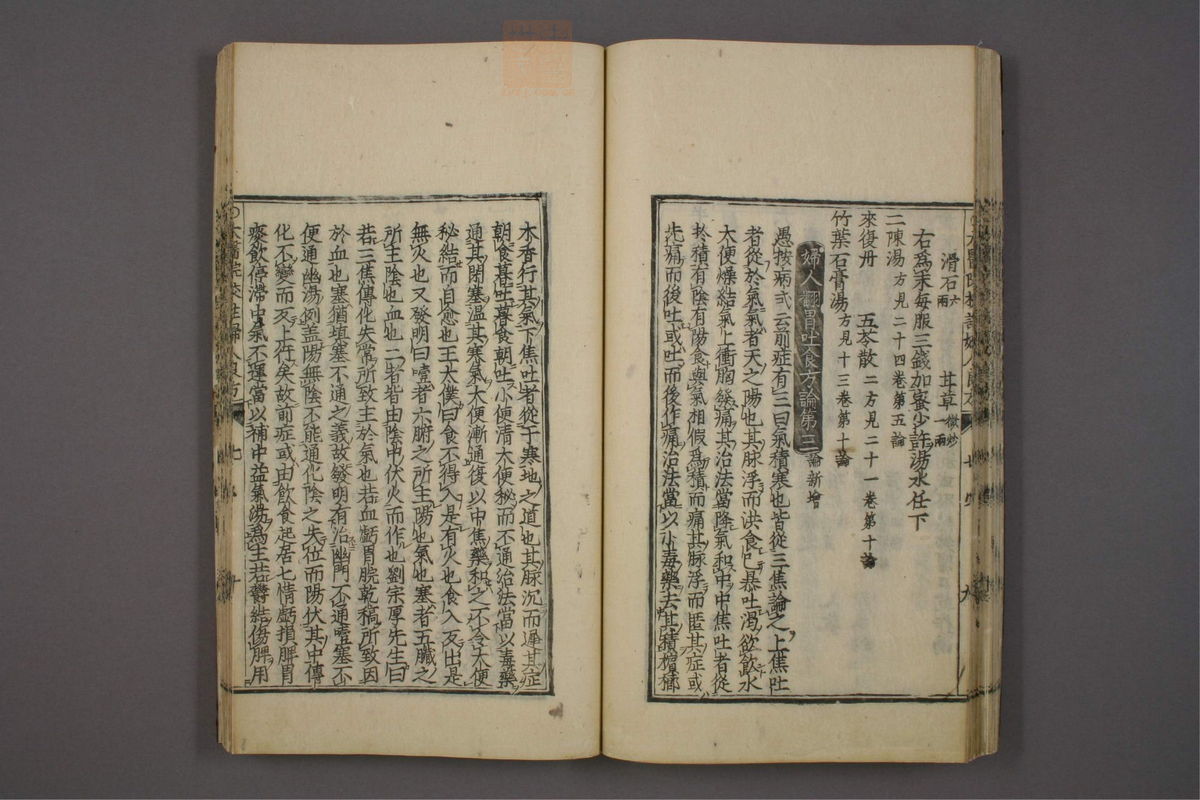 滑石六兩　甘草一兩微炒
右為末每服三錢加蜜少許湯水任下
二陳湯方見二十四卷第五論
來復丹　五苓散二方見二十一卷第十論
竹葉石膏湯方見十三卷第十論
婦人翻胃吐食方論第三論新增
愚按病式云前症有三曰氣積寒也皆從三焦論之上焦吐
者從於氣氣者天之陽也其脉浮而洪食已暴吐渴欲飲水
大便燥結氣上衝胸發痛其治法當降氣和中中焦吐者從
於積有陰有陽食與氣相假為積而痛其脉浮而匿其症或
先痛而後吐或吐而後作痛治法當以小毒藥去其積檳榔
木香行其氣下焦吐者從于寒地之道也其脉沉而遲其症
朝食暮吐暮食朝吐小便清大便秘而不通治法當以毒藥
通其閉塞溫其寒氣大便漸通後以中焦藥和之不令大便
秘結而自愈也王太僕曰食不得入是有火也食入反出是
無火也又發明曰噎者六腑之所主陽也氣也塞者五臟之
所主陰也血也二者皆由陰中伏火而作也劉宗厚先生曰
若三焦傳化失常所致主於氣也若血虧胃脘乾槁所致因
於血也塞猶填塞不通之義故發明有治幽門不通噎塞不
便通幽湯例盖陽無陰不能通化陰之失位而陽伏其中傳
化不變而反上行矣故前症或由飲食起居七情虧損脾胃
痰飲停滯中氣不運當以補中益氣湯為主若鬱結傷脾用